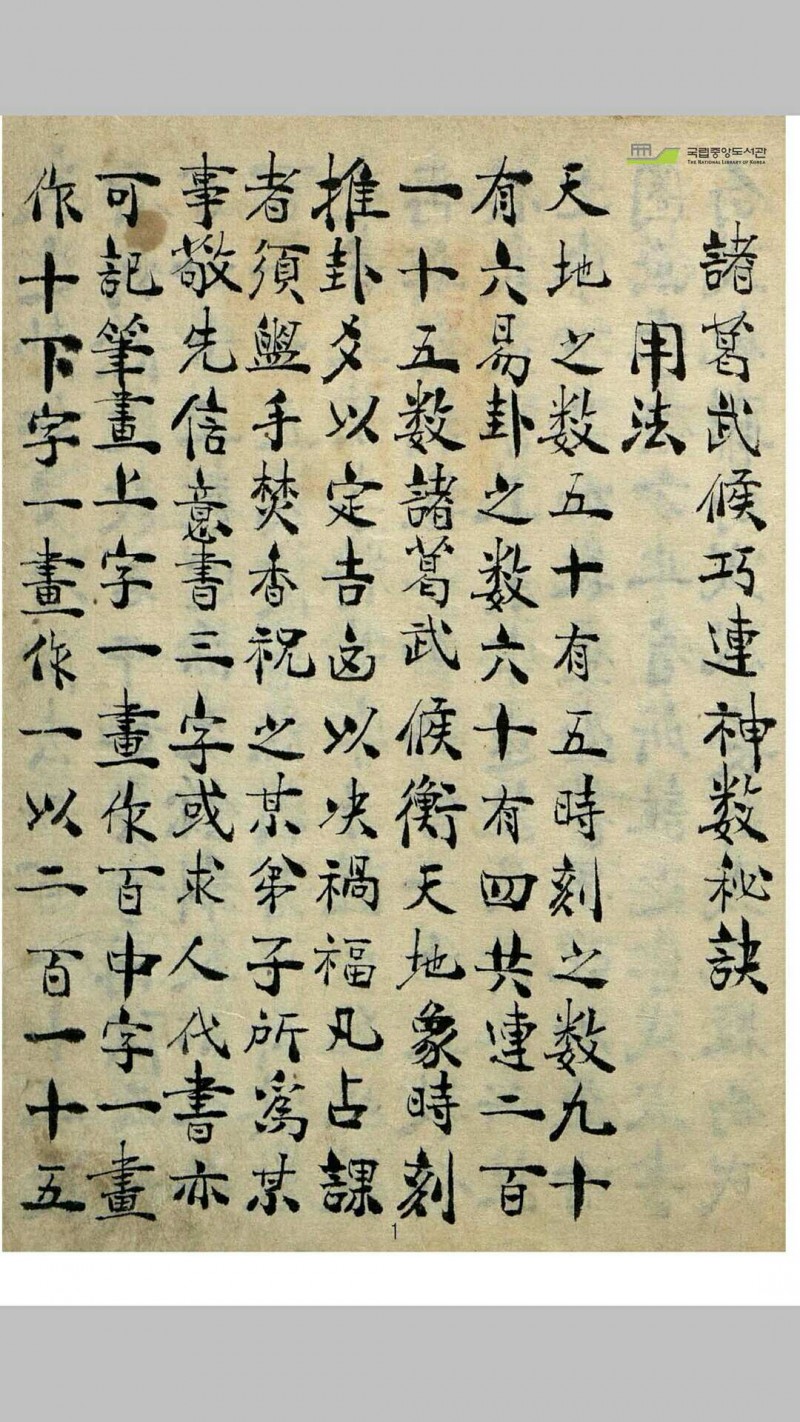 諸葛武候巧連神数秘訣
用法
天地之数五十有五時刻之数九十
有六易卦之数六十有四共連二百
一十五数諸葛武候衡天地象時刻
推卦爻以定吉凶以决禍福凡占課
者須盥手焚香祝之某弟子所爲某
事敬先信意書三字或求人代書亦
可記筆畫上字一畫作百中字一畫
作十下字一畫作一以二百一十五
국립중앙도서관
THE NATIONAL LIBRARY OF KOREA
1